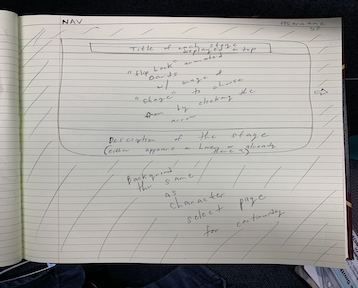 NAV
Title of each stage
displayed @ top
"flip book" animated
cards
w/ image of
"stage" to choose
from by clicking the
arrow
Description of the stage
(either appears on hover or already there)
Background
the same
as
character
select page
for continuity